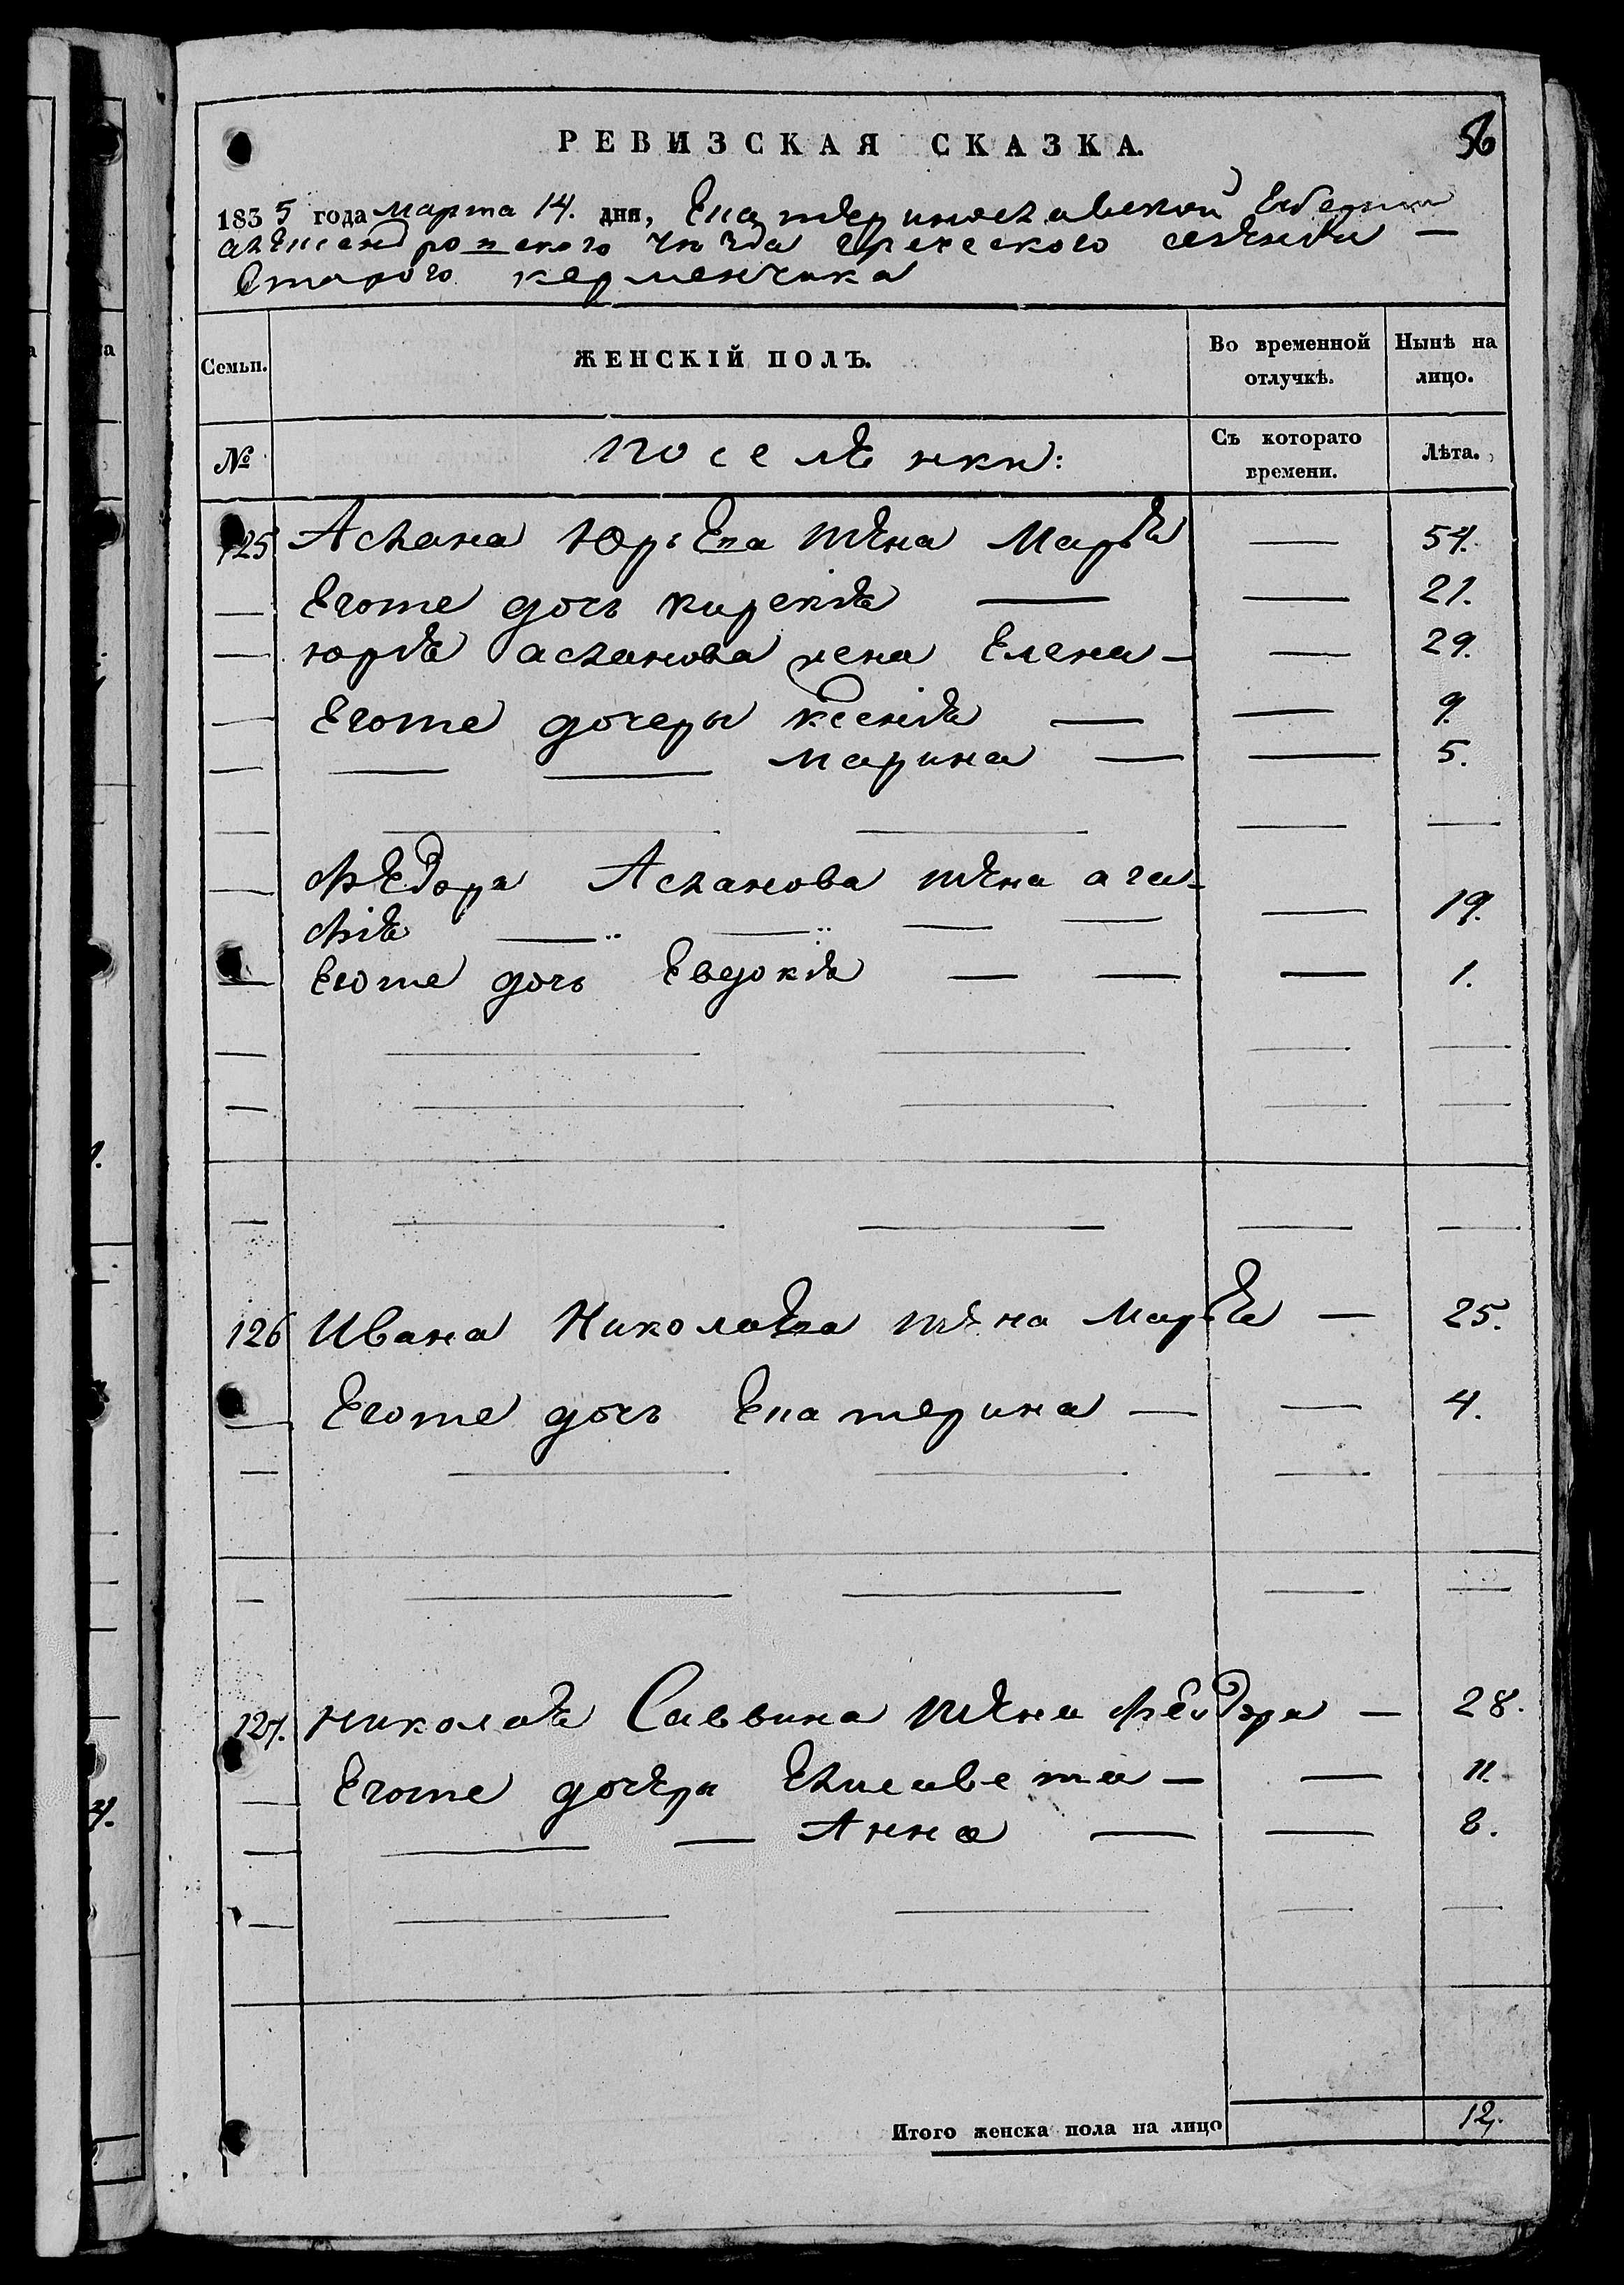 56
РЕВИЗСКАЯ СКАЗКА.
1835 года марта 14. дня, Екатеринославской Губернии
александровского уезда греческого селения —
Старого керменчика
Семьи. ЖЕНСКІЙ ПОЛЪ. Во временной отлучкѣ. Нынѣ на лицо.
№ поселенки: Съ котораго времени. Лѣта.
125 Аслана Юрьева жена Марья — 54.
— Егоже дочь кирекія — — 21.
— юрія асланова жена Елена — — 29.
— Егоже дочеры ксенія — — 9.
— — — марина — — 5.
— Фѣдора Асланова жена ага-
фія — — — — — 19.
— Егоже дочь Евдокія — — — 1.
126 Ивана Николаева жена Марья — 25.
— Егоже дочь Екатерина — — 4.
127. николая Саввина жена Феодора — 28.
— Егоже дочери Елисавета — — 11.
— — — Анна — — 8.
Итого женска пола на лицо 12.